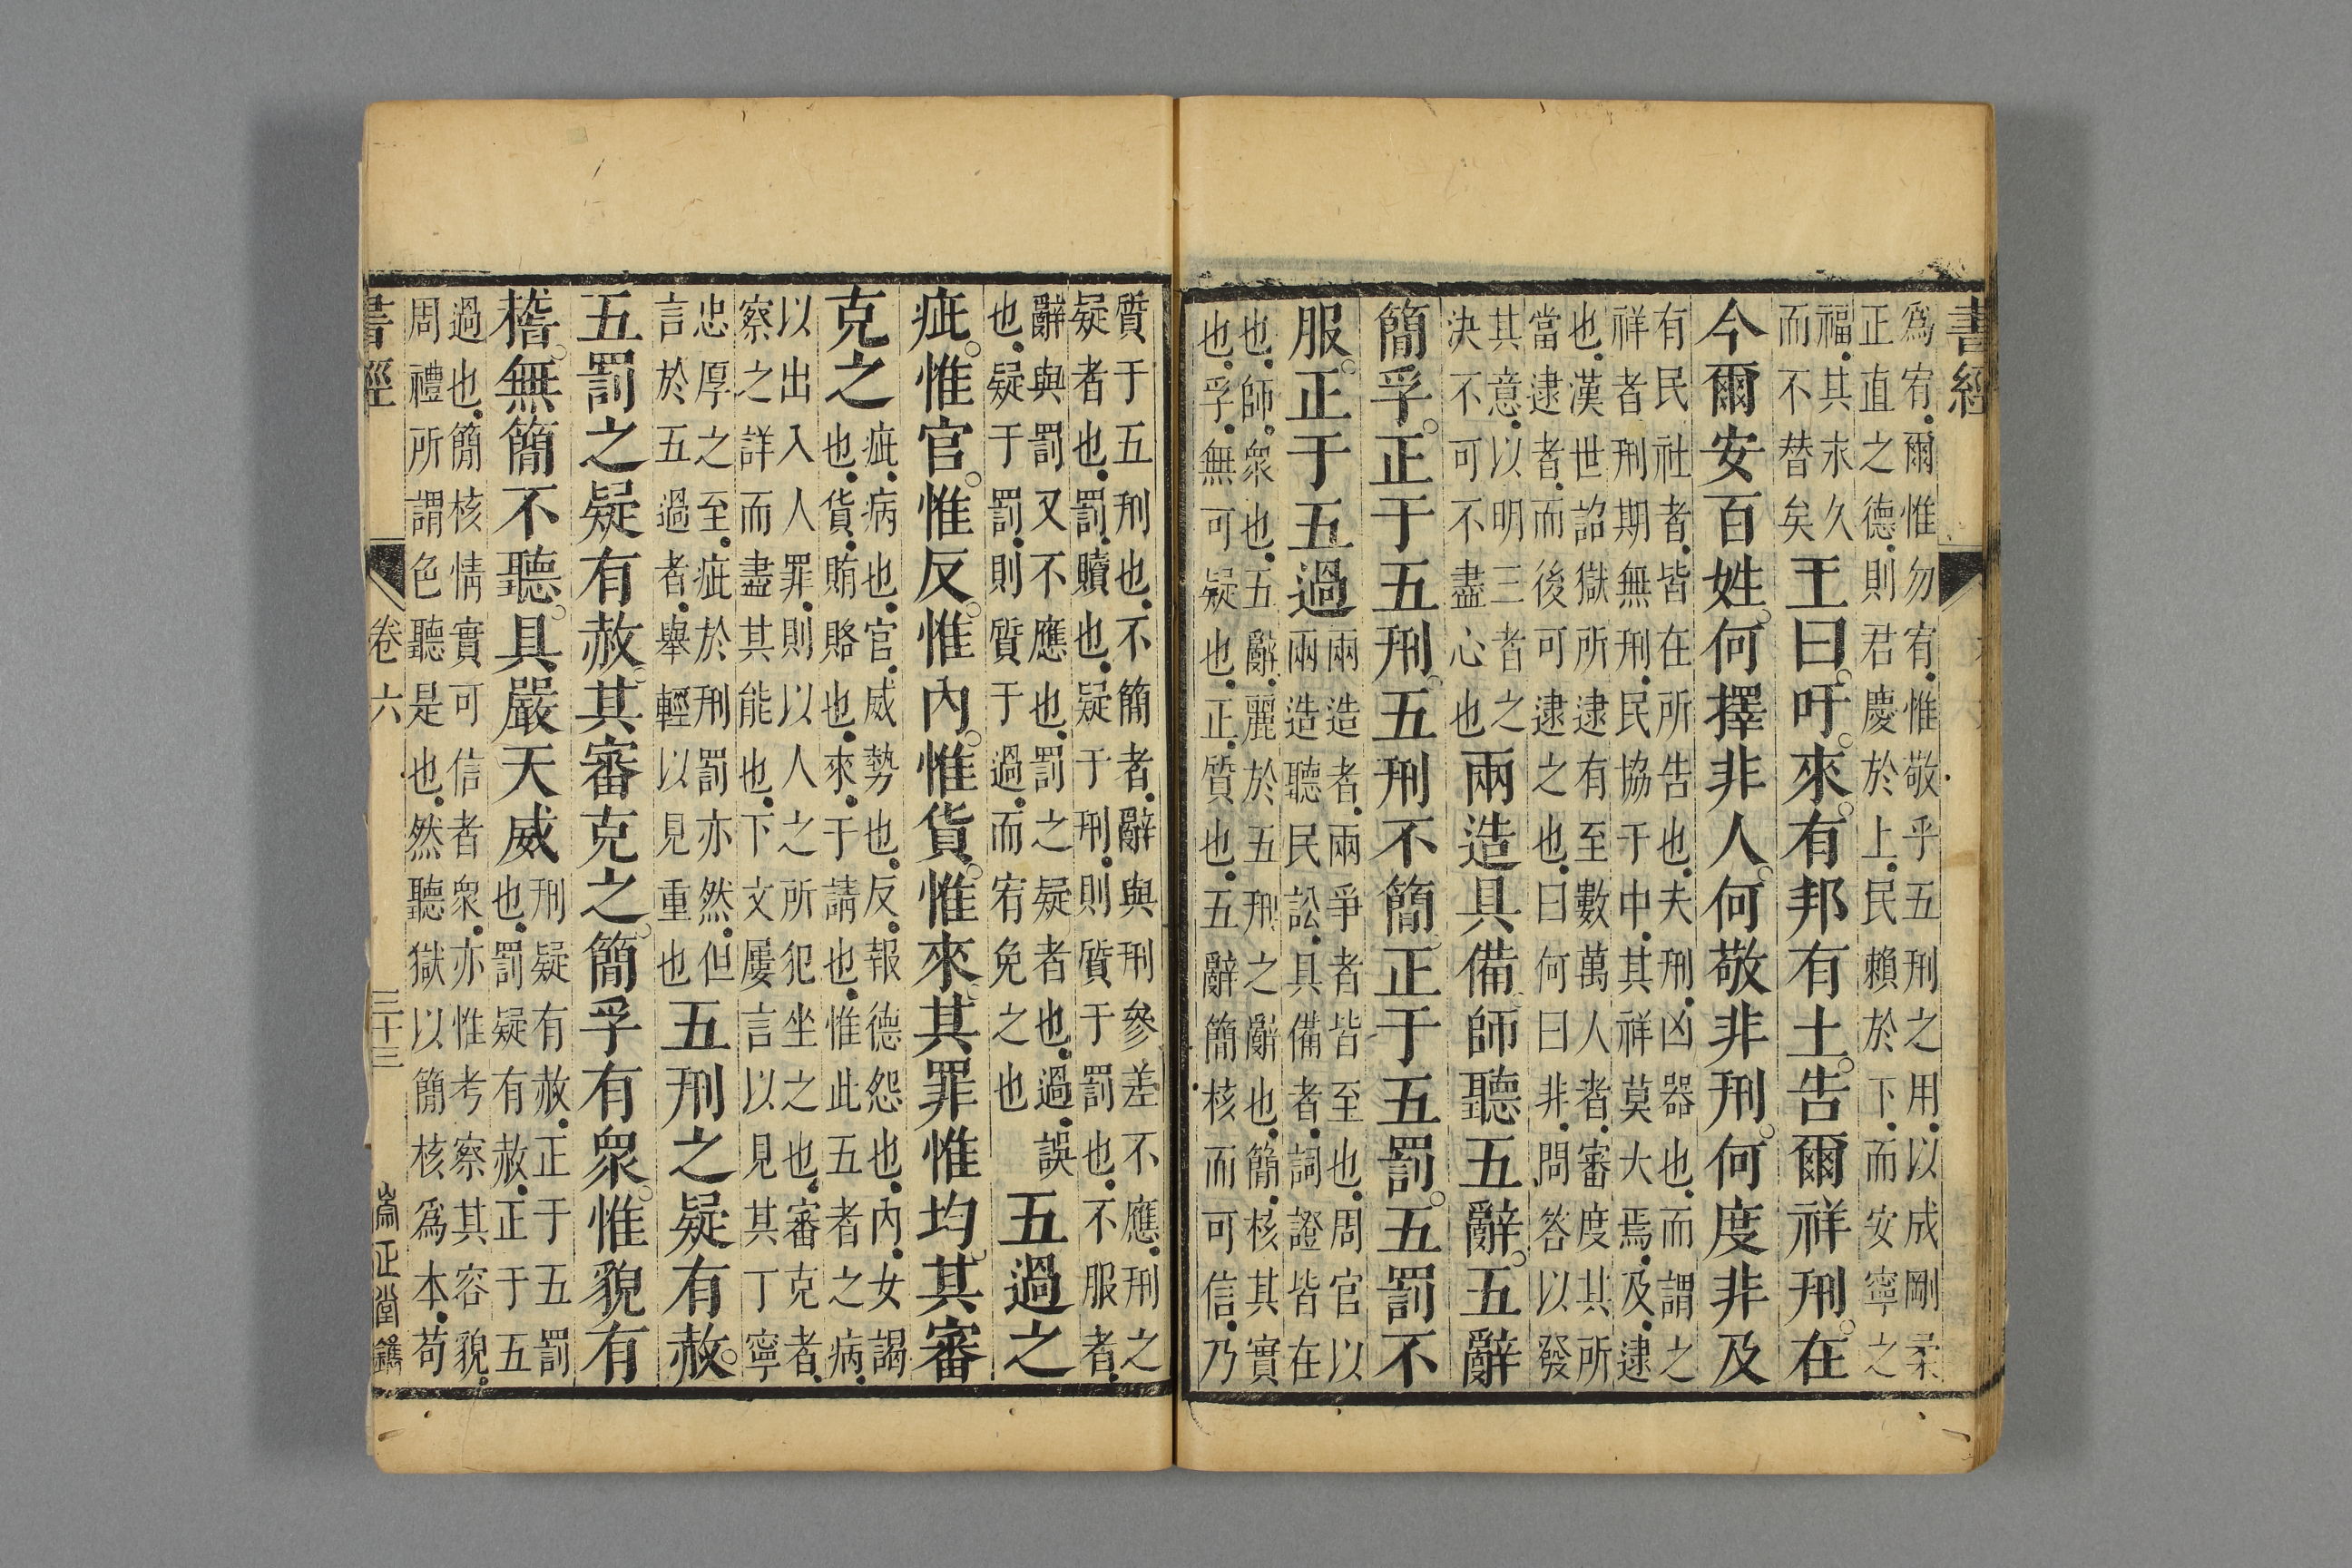 書經
爲宥爾惟勿宥惟敬乎五刑之用以成剛柔
正直之德則君慶於上民賴於下而安寧之
福其永久
而不替矣
王曰吁來有邦有土告爾祥刑在
今爾安百姓何擇非人何敬非刑何度非及
有民社者皆在所告也夫刑凶器也而謂之
祥者刑期無刑民協于中其祥莫大焉及逮
也漢世詔獄所逮有至數萬人者審度其所
當逮者而後可逮之也曰何曰非問答以發
其意以明三者之
決不可不盡心也
兩造具備師聽五辭五辭
簡孚正于五刑五刑不簡正于五罰五罰不
服正于五過
兩造者兩爭者皆至也周官以
兩造聽民訟具備者詞證皆在
也師衆也五辭麗於五刑之辭也簡核其實
也孚無可疑也正質也五辭簡核而可信乃
質于五刑也不簡者辭與刑參差不應刑之
疑者也罰贖也疑于刑則質于罰也不服者
辭與罰又不應也罰之疑者也過誤
也疑于罰則質于過而宥免之也
五過之
疵惟官惟反惟內惟貨惟來其罪惟均其審
克之
疵病也官威勢也反報德怨也內女謁
也貨賄賂也來于請也惟此五者之病
以出入人罪則以人之所犯坐之也審克者
察之詳而盡其能也下文屢言以見其丁寧
忠厚之至疵於刑罰亦然但
言於五過者舉輕以見重也
五刑之疑有赦
五罰之疑有赦其審克之簡孚有衆惟貌有
稽無簡不聽具嚴天威
刑疑有赦正于五罰
也罰疑有赦正于五
過也簡核情實可信者衆亦惟考察其容貌
周禮所謂色聽是也然聽獄以簡核爲本苟
書經
卷六
三十三
崙正堂鐫